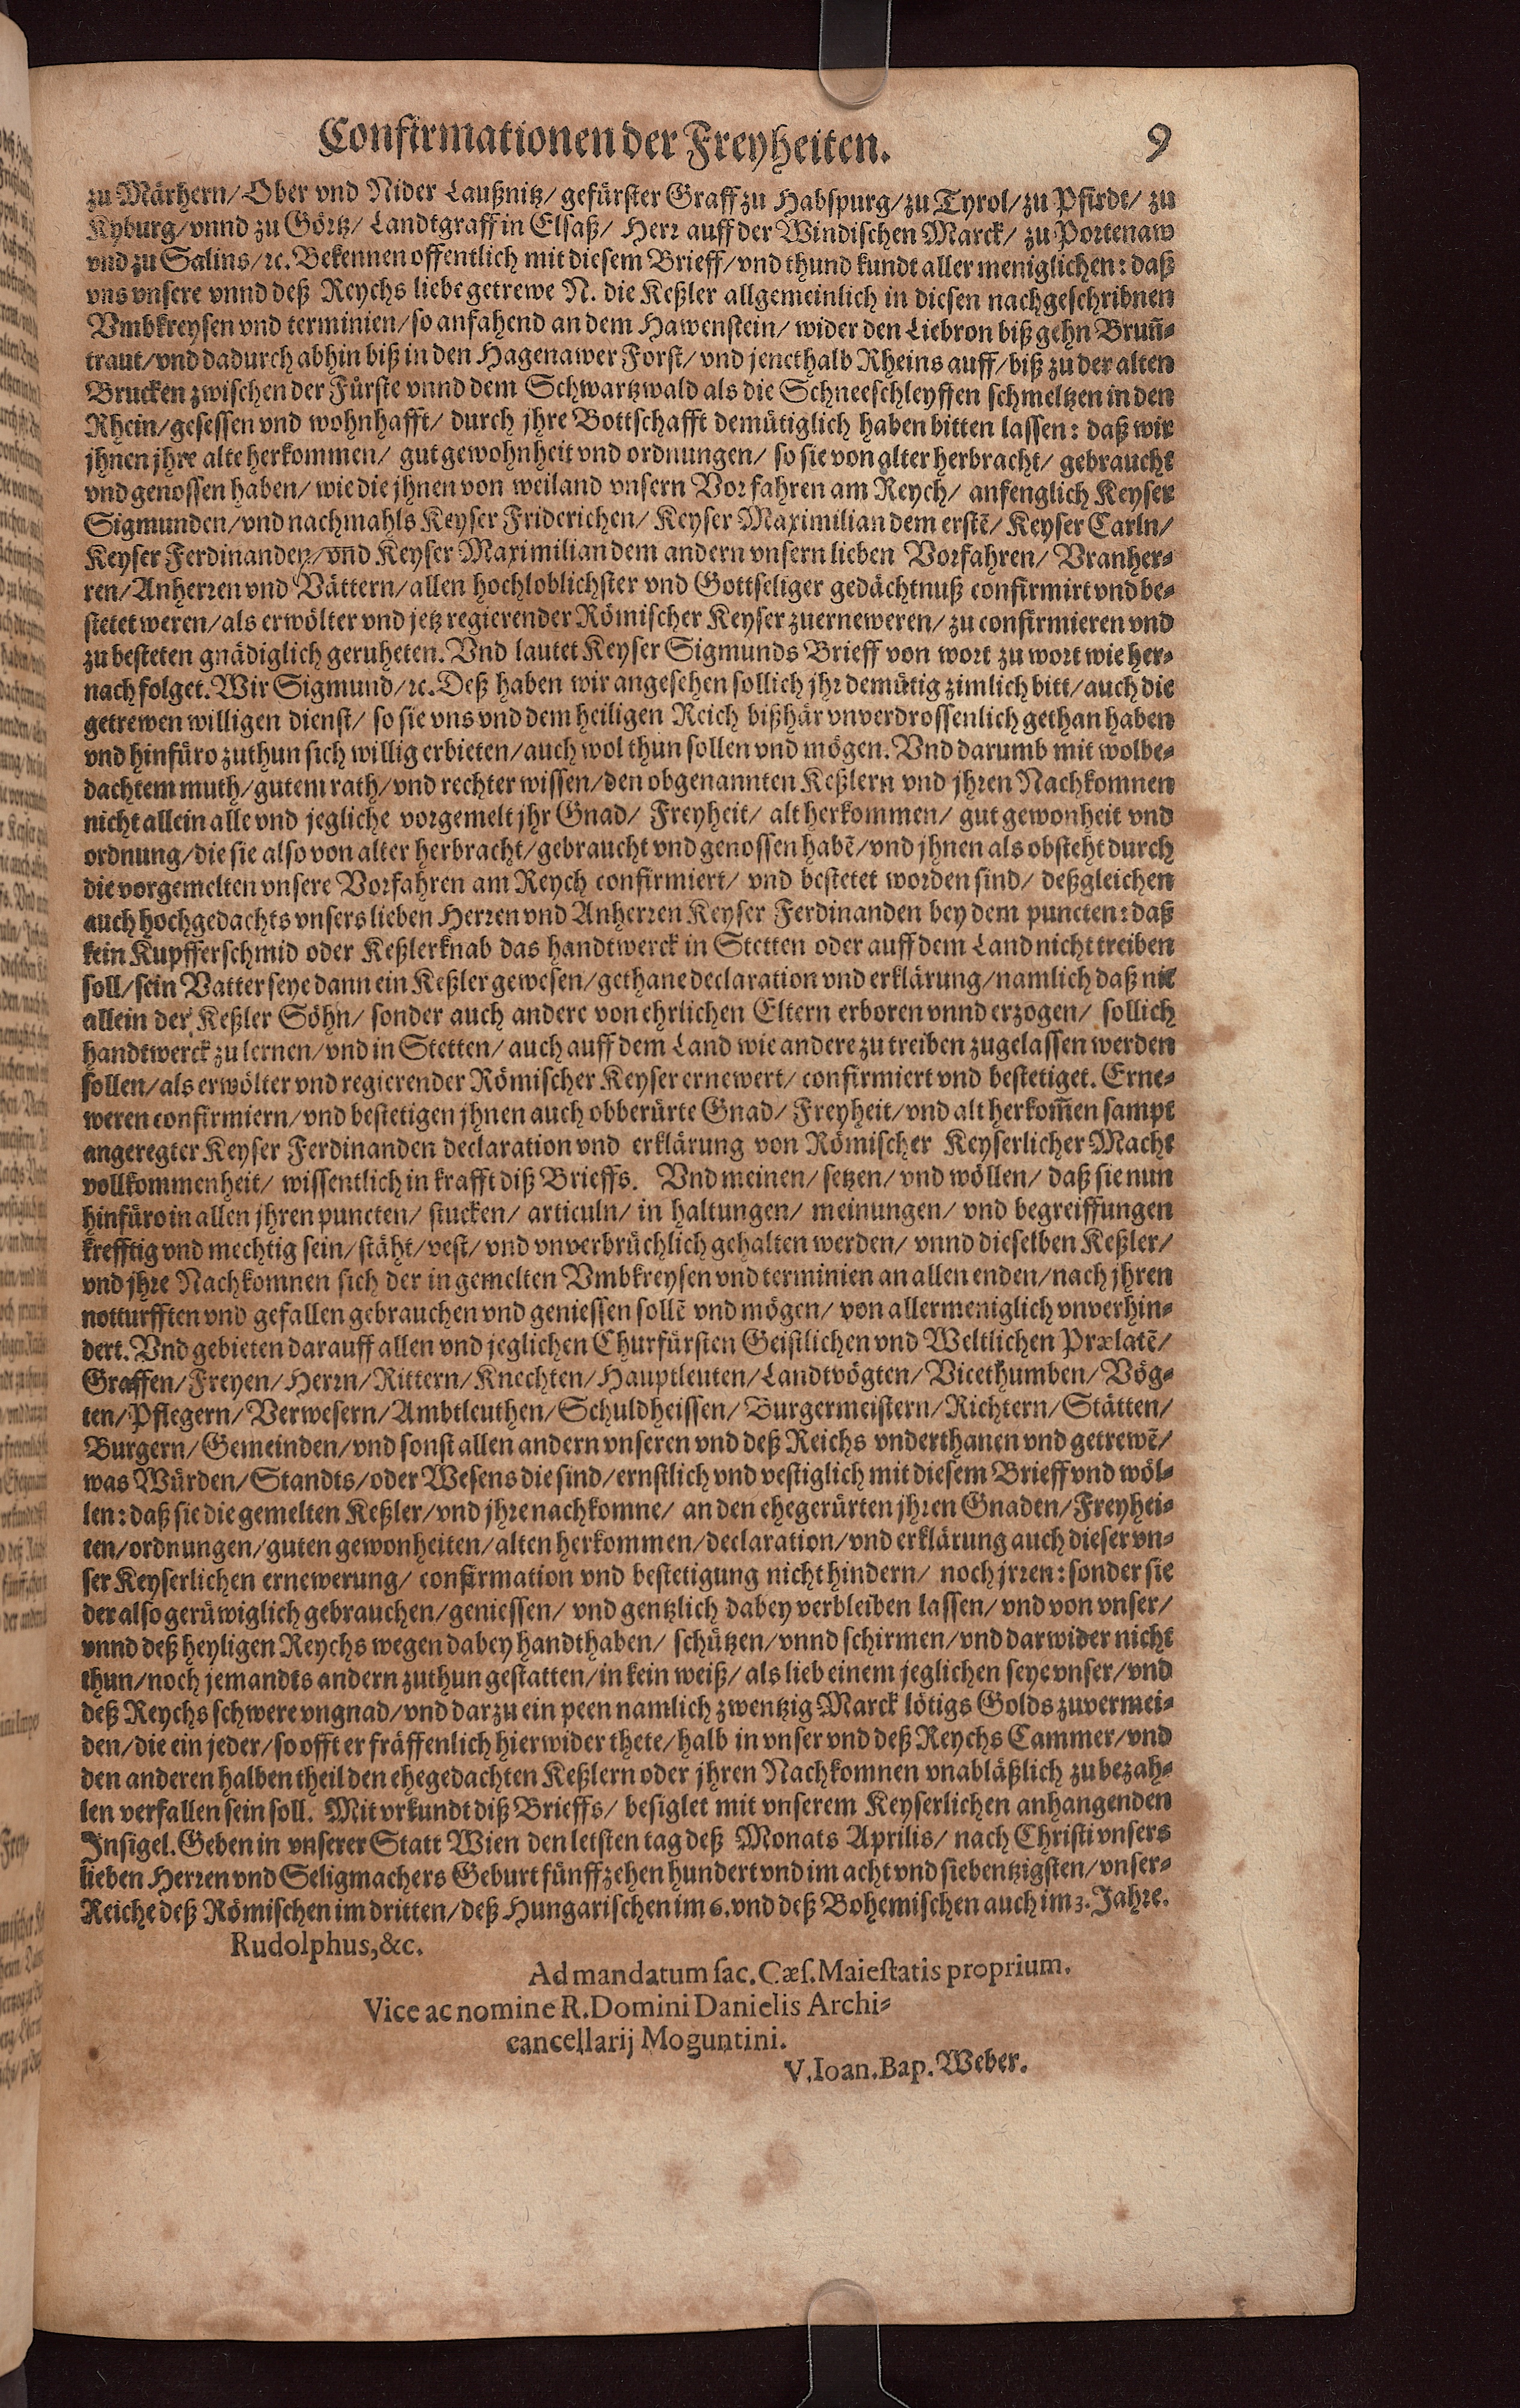 Confirmationen der Freyheiten. 9
zu Märhern/ Ober vnd Nider Laußnitz/ gefürster Graff zu Habspurg/ zu Tyrol/ zu Pfirdt/ zu
Kyburg/ vnnd zu Görtz/ Landtgraff in Elsaß/ Herr auff der Windischen Marck/ zu Portenaw
vnd zu Salins/ ꝛc. Bekennen offentlich mit diesem Brieff/ vnd thund kundt aller meniglichen: daß
vns vnsere vnnd deß Reychs liebe getrewe N. die Keßler allgemeinlich in diesen nachgeschribnen
Vmbkreysen vnd terminien/ so anfahend an dem Hawenstein/ wider den Liebron biß gehn Brun̄-
traut/ vnd dadurch abhin biß in den Hagenawer Forst/ vnd jenethalb Rheins auff/ biß zu der alten
Brucken zwischen der Fürste vnnd dem Schwartzwald als die Schneeschleyffen schmeltzen in den
Rhein/ gesessen vnd wohnhafft/ durch jhre Bottschafft demütiglich haben bitten lassen: daß wir
jhnen jhre alte herkommen/ gut gewohnheit vnd ordnungen/ so sie von alter herbracht/ gebraucht
vnd genossen haben/ wie die jhnen von weiland vnsern Vorfahren am Reych/ anfenglich Keyser
Sigmunden/ vnd nachmahls Keyser Friderichen/ Keyser Maximilian dem erstē/ Keyser Carln/
Keyser Ferdinanden/ vnd Keyser Maximilian dem andern vnsern lieben Vorfahren/ Vranher-
ren/ Anherren vnd Vättern/ allen hochloblichster vnd Gottseliger gedächtnuß confirmirt vnd be-
stetet weren/ als erwölter vnd jetz regierender Römischer Keyser zuerneweren/ zu confirmieren vnd
zu besteten gnädiglich geruheten. Vnd lautet Keyser Sigmunds Brieff von wort zu wort wie her-
nach folget. Wir Sigmund/ ꝛc. Deß haben wir angesehen sollich jhr demütig zimlich bitt/ auch die
getrewen willigen dienst/ so sie vns vnd dem heiligen Reich bißhär vnverdrossenlich gethan haben
vnd hinfüro zuthun sich willig erbieten/ auch wol thun sollen vnd mögen. Vnd darumb mit wolbe-
dachtem muth/ gutem rath/ vnd rechter wissen/ den obgenannten Keßlern vnd jhren Nachkomnen
nicht allein alle vnd jegliche vorgemelt jhr Gnad/ Freyheit/ alt herkommen/ gut gewonheit vnd
ordnung/ die sie also von alter herbracht/ gebraucht vnd genossen habē/ vnd jhnen als obsteht durch
die vorgemelten vnsere Vorfahren am Reych confirmiert/ vnd bestetet worden sind/ deßgleichen
auch hochgedachts vnsers lieben Herren vnd Anherren Keyser Ferdinanden bey dem puncten: daß
kein Kupfferschmid oder Keßlerknab das handtwerck in Stetten oder auff dem Land nicht treiben
soll/ sein Vatter seye dann ein Keßler gewesen/ gethane declaration vnd erklärung/ namlich daß nit
allein der Keßler Söhn/ sonder auch andere von ehrlichen Eltern erboren vnnd erzogen/ sollich
handtwerck zu lernen/ vnd in Stetten/ auch auff dem Land wie andere zu treiben zugelassen werden
sollen/ als erwölter vnd regierender Römischer Keyser ernewert/ confirmiert vnd bestetiget. Erne-
weren confirmiern/ vnd bestetigen jhnen auch obberürte Gnad/ Freyheit/ vnd alt herkom̄en sampt
angeregter Keyser Ferdinanden declaration vnd erklärung von Römischer Keyserlicher Macht
vollkommenheit/ wissentlich in krafft diß Brieffs. Vnd meinen/ setzen/ vnd wöllen/ daß sie nun
hinfüro in allen jhren puncten/ stucken/ articuln/ in haltungen/ meinungen/ vnd begreiffungen
krefftig vnd mechtig sein/ stäht/ vest/ vnd vnverbrüchlich gehalten werden/ vnnd dieselben Keßler/
vnd jhre Nachkomnen sich der in gemelten Vmbkreysen vnd terminien an allen enden/ nach jhren
notturfften vnd gefallen gebrauchen vnd geniessen sollē vnd mögen/ von allermeniglich vnverhin-
dert. Vnd gebieten darauff allen vnd jeglichen Churfürsten Geistlichen vnd Weltlichen Prælatē/
Graffen/ Freyen/ Herrn/ Rittern/ Knechten/ Hauptleuten/ Landtvögten/ Vicethumben/ Vög-
ten/ Pflegern/ Verwesern/ Ambtleuthen/ Schuldheissen/ Burgermeistern/ Richtern/ Stätten/
Burgern/ Gemeinden/ vnd sonst allen andern vnseren vnd deß Reichs vnderthanen vnd getrewē/
was Würden/ Standts/ oder Wesens die sind/ ernstlich vnd vestiglich mit diesem Brieff vnd wöl-
len: daß sie die gemelten Keßler/ vnd jhre nachkomne/ an den ehegerürten jhren Gnaden/ Freyhei-
ten/ ordnungen/ guten gewonheiten/ alten herkommen/ declaration/ vnd erklärung auch dieser vn-
ser Keyserlichen ernewerung/ confirmation vnd bestetigung nicht hindern/ noch jrren: sonder sie
der also gerüwiglich gebrauchen/ geniessen/ vnd gentzlich dabey verbleiben lassen/ vnd von vnser/
vnnd deß heyligen Reychs wegen dabey handthaben/ schützen/ vnnd schirmen/ vnd darwider nicht
thun/ noch jemandts andern zuthun gestatten/ in kein weiß/ als lieb einem jeglichen seye vnser/ vnd
deß Reychs schwere vngnad/ vnd darzu ein peen namlich zwentzig Marck lötigs Golds zuvermei-
den/ die ein jeder/ so offt er fräffenlich hierwider thete/ halb in vnser vnd deß Reychs Cammer/ vnd
den anderen halben theil den ehegedachten Keßlern oder jhren Nachkomnen vnabläßlich zu bezah-
len verfallen sein soll. Mit vrkundt diß Brieffs/ besiglet mit vnserem Keyserlichen anhangenden
Insigel. Geben in vnserer Statt Wien den letsten tag deß Monats Aprilis/ nach Christi vnsers
lieben Herren vnd Seligmachers Geburt fünffzehen hundert vnd im acht vnd siebentzigsten/ vnser-
Reiche deß Römischen im dritten/ deß Hungarischen im 6. vnd deß Bohemischen auch im 3. Jahre.
Rudolphus, &c.
Ad mandatum sac. Cæs. Maiestatis proprium.
Vice ac nomine R. Domini Danielis Archi-
cancellarij Moguntini.
V. Ioan. Bap. Weber.